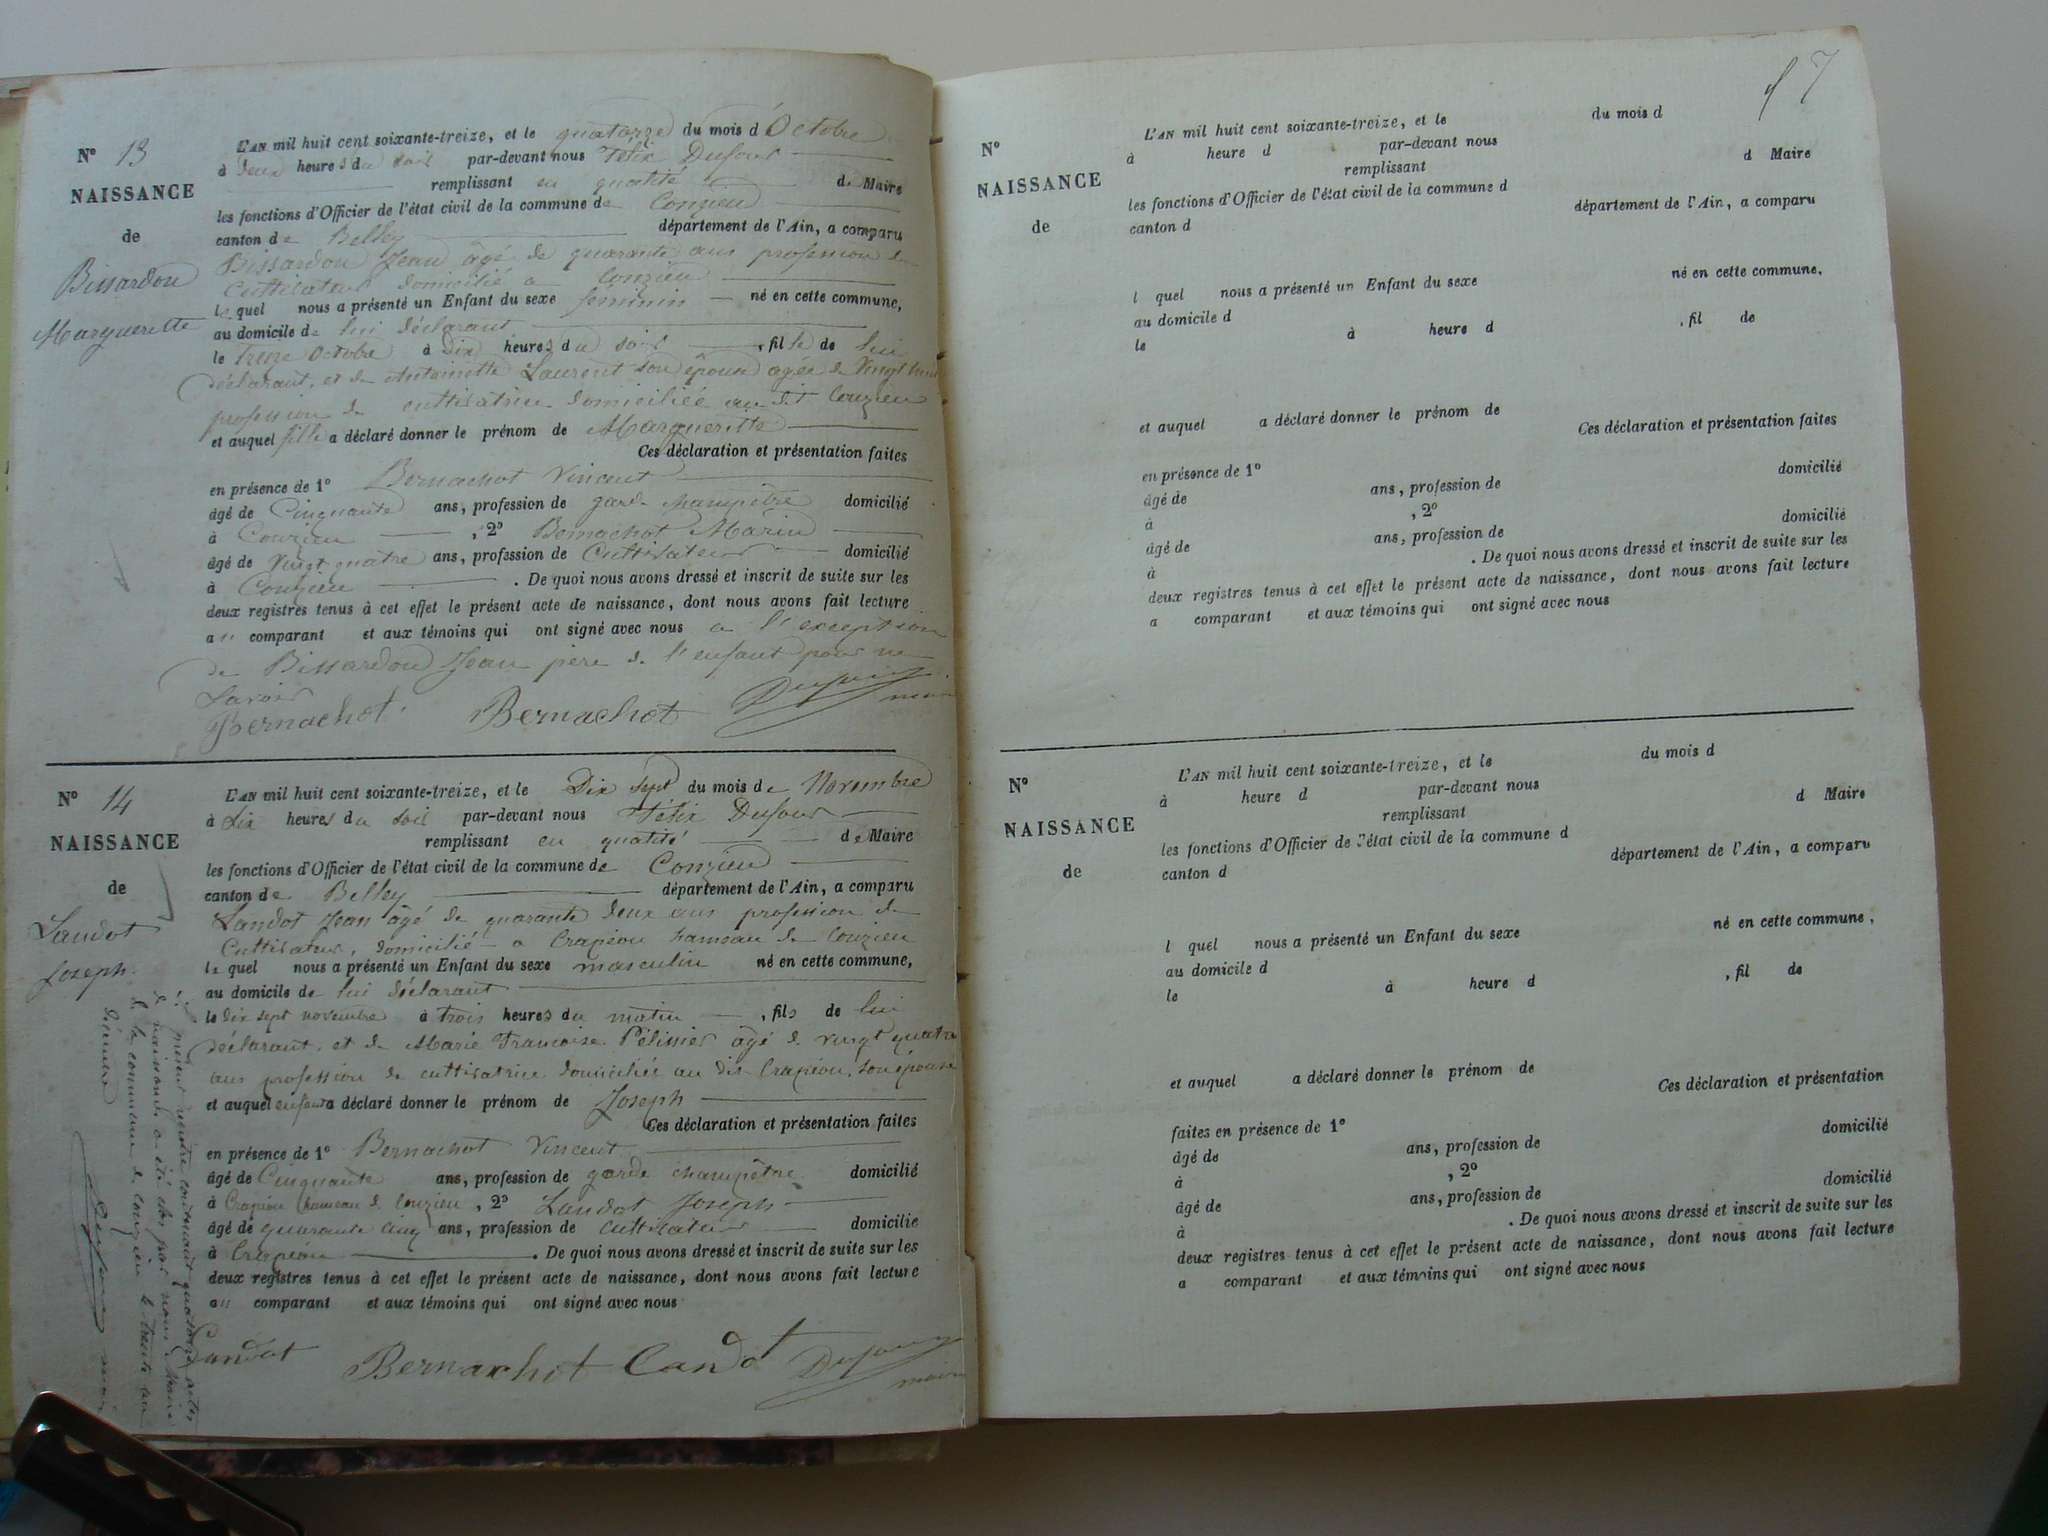 N° 13
NAISSANCE
de
Bissardon
Marguerette
L'AN mil huit cent soixante-treize, et le quatorze du mois d'Octobre
à Deux heures du soir par-devant nous Félix Dufour
remplissant en qualité de Maire
les fonctions d'Officier de l'état civil de la commune de Conzieu
canton de Belley département de l'Ain, a comparu
Bissardon Jean âgé de quarante ans profession de
Cultivateur domicilié a Conzieu
lequel nous a présenté un Enfant du sexe féminin né en cette commune,
au domicile de lui déclarant
le treize Octobre à Dix heures du soir, fille de lui
déclarant, et de Antoinette Laurent son épouse agée de Vingt
profession de cultivatrice domiciliée au dit Conzieu
et auquel fille a déclaré donner le prénom de Margueritte
Ces déclaration et présentation faites
en présence de 1° Bernachot Vincent
âgé de Cinquante ans, profession de garde champêtre domicilié
à Conzieu, 2° Bernachot Marin
âgé de Vingt quatre ans, profession de Cultivateur domicilié
à Conzieu. De quoi nous avons dressé et inscrit de suite sur les
deux registres tenus à cet effet le présent acte de naissance, dont nous avons fait lecture
au comparant et aux témoins qui ont signé avec nous a l'exception
de Bissardon Jean père de l'enfant pour ne
Savoir
Bernachot Bernachot Dufour
maire
N° 14
NAISSANCE
de
Landot
Joseph
L'AN mil huit cent soixante-treize, et le Dix sept du mois de Novembre
à Six heures du soir par-devant nous Félix Dufour
remplissant en qualité de Maire
les fonctions d'Officier de l'état civil de la commune de Conzieu
canton de Belley département de l'Ain, a comparu
Landot Jean âgé de quarante deux ans profession de
Cultivateur, domicilié a Crapéou hameau de Conzieu
lequel nous a présenté un Enfant du sexe masculin né en cette commune,
au domicile de lui déclarant
le dix sept novembre à trois heures du matin, fils de lui
déclarant, et de Marie Francoise Pélissier âgé de vingt quatre
ans profession de cultivatrice domiciliés au dit Crapéou, son épouse
et auquel enfant a déclaré donner le prénom de Joseph
Ces déclaration et présentation faites
en présence de 1° Bernachot Vincent
âgé de Cinquante ans, profession de garde champêtre domicilié
à Crapéou hameau de Conzieu, 2° Landot Joseph
âgé de quarante cinq ans, profession de cultivateur domicilié
à Crapéou. De quoi nous avons dressé et inscrit de suite sur les
deux registres tenus à cet effet le présent acte de naissance, dont nous avons fait lecture
au comparant et aux témoins qui ont signé avec nous
Landot Bernachot Landot Dufour
maire
Le présent registre contenant quatorze actes
de naissance a été clos par nous Maire
de la commune de Conzieu le trente un
Décembre
Dufour maire
7
N°
NAISSANCE
de
L'AN mil huit cent soixante-treize, et le du mois d
à heure d par-devant nous
remplissant d Maire
les fonctions d'Officier de l'état civil de la commune d
canton d département de l'Ain, a comparu
l quel nous a présenté un Enfant du sexe né en cette commune,
au domicile d
le à heure d , fil de
et auquel a déclaré donner le prénom de
Ces déclaration et présentation faites
en présence de 1°
âgé de ans, profession de domicilié
à , 2°
âgé de ans, profession de domicilié
à . De quoi nous avons dressé et inscrit de suite sur les
deux registres tenus à cet effet le présent acte de naissance, dont nous avons fait lecture
a comparant et aux témoins qui ont signé avec nous
N°
NAISSANCE
de
L'AN mil huit cent soixante-treize, et le du mois d
à heure d par-devant nous
remplissant d Maire
les fonctions d'Officier de l'état civil de la commune d
canton d département de l'Ain, a comparu
l quel nous a présenté un Enfant du sexe né en cette commune,
au domicile d
le à heure d , fil de
et auquel a déclaré donner le prénom de
Ces déclaration et présentation
faites en présence de 1°
âgé de ans, profession de domicilié
à , 2°
âgé de ans, profession de domicilié
à . De quoi nous avons dressé et inscrit de suite sur les
deux registres tenus à cet effet le présent acte de naissance, dont nous avons fait lecture
a comparant et aux témoins qui ont signé avec nous